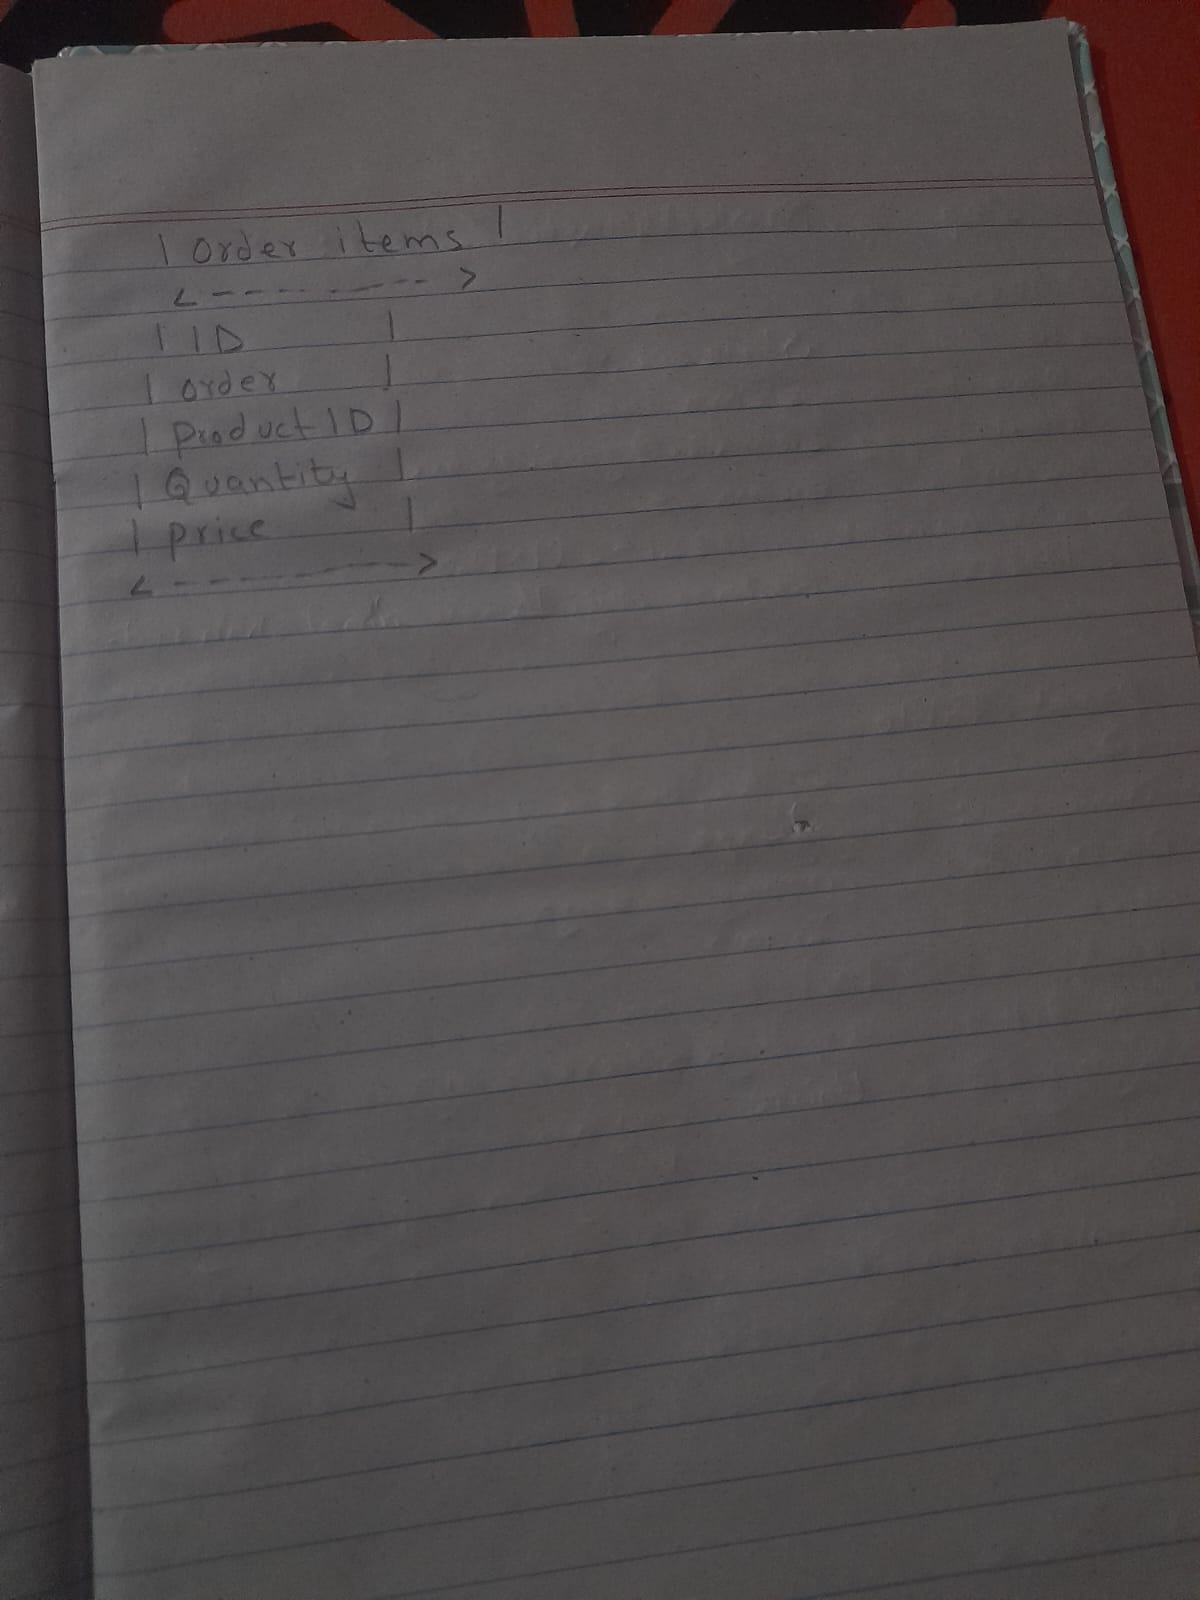 | Order items |
<--------->
| ID |
| order |
| Product ID |
| Quantity |
| price |
<--------->